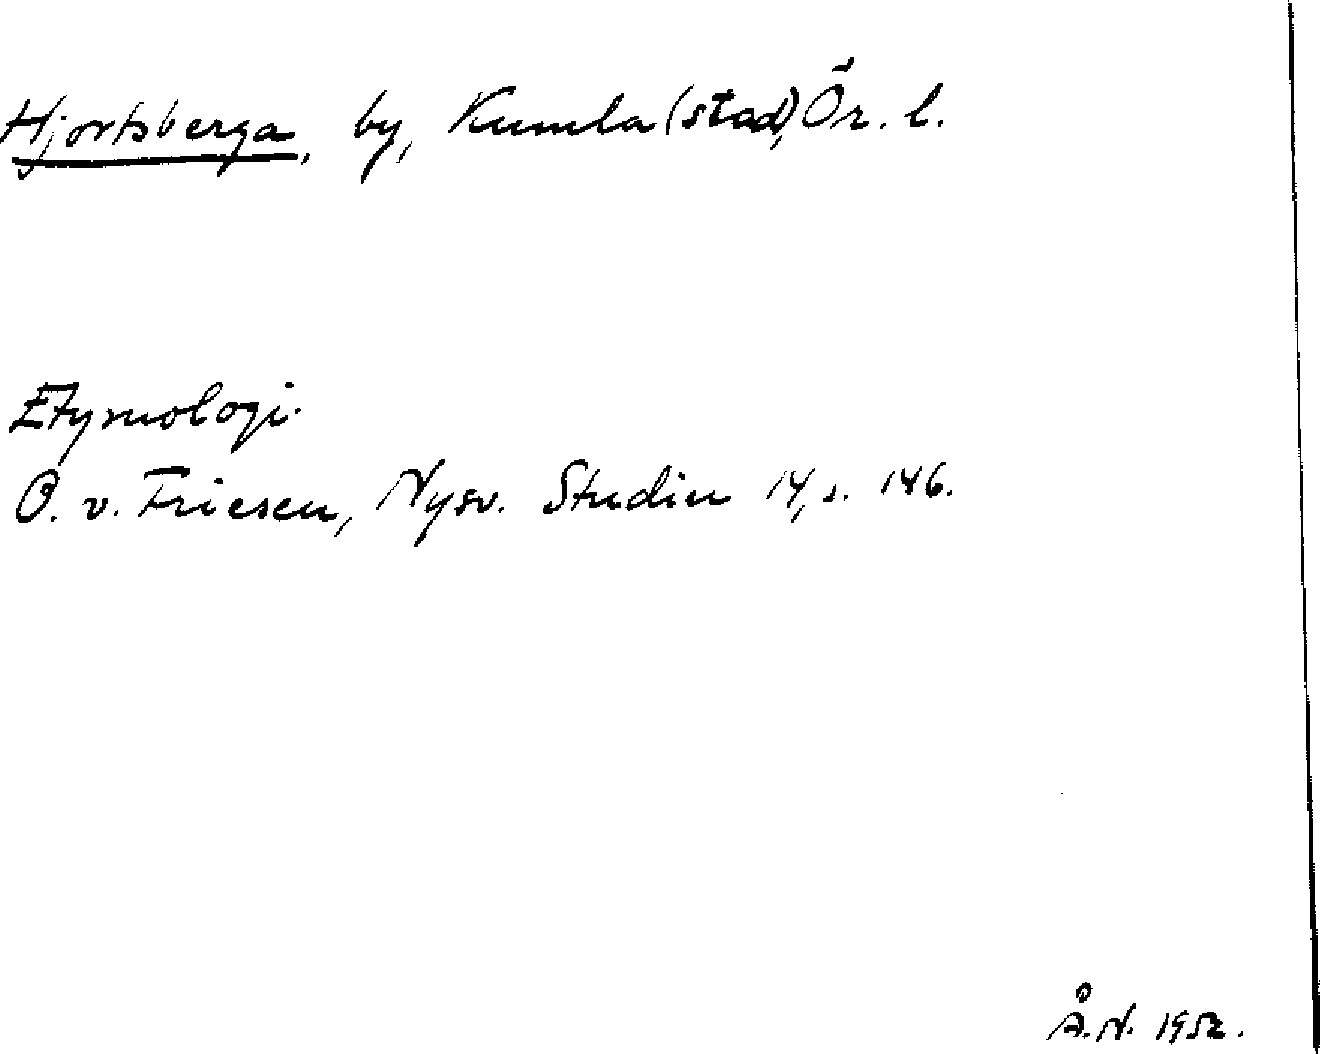 Hjortsberga, by, Kumla (stad), Ör. l.
Etymologi.
O. v. Friesen, Nysv. Studier 14, s. 146.
Å. N. 1952.